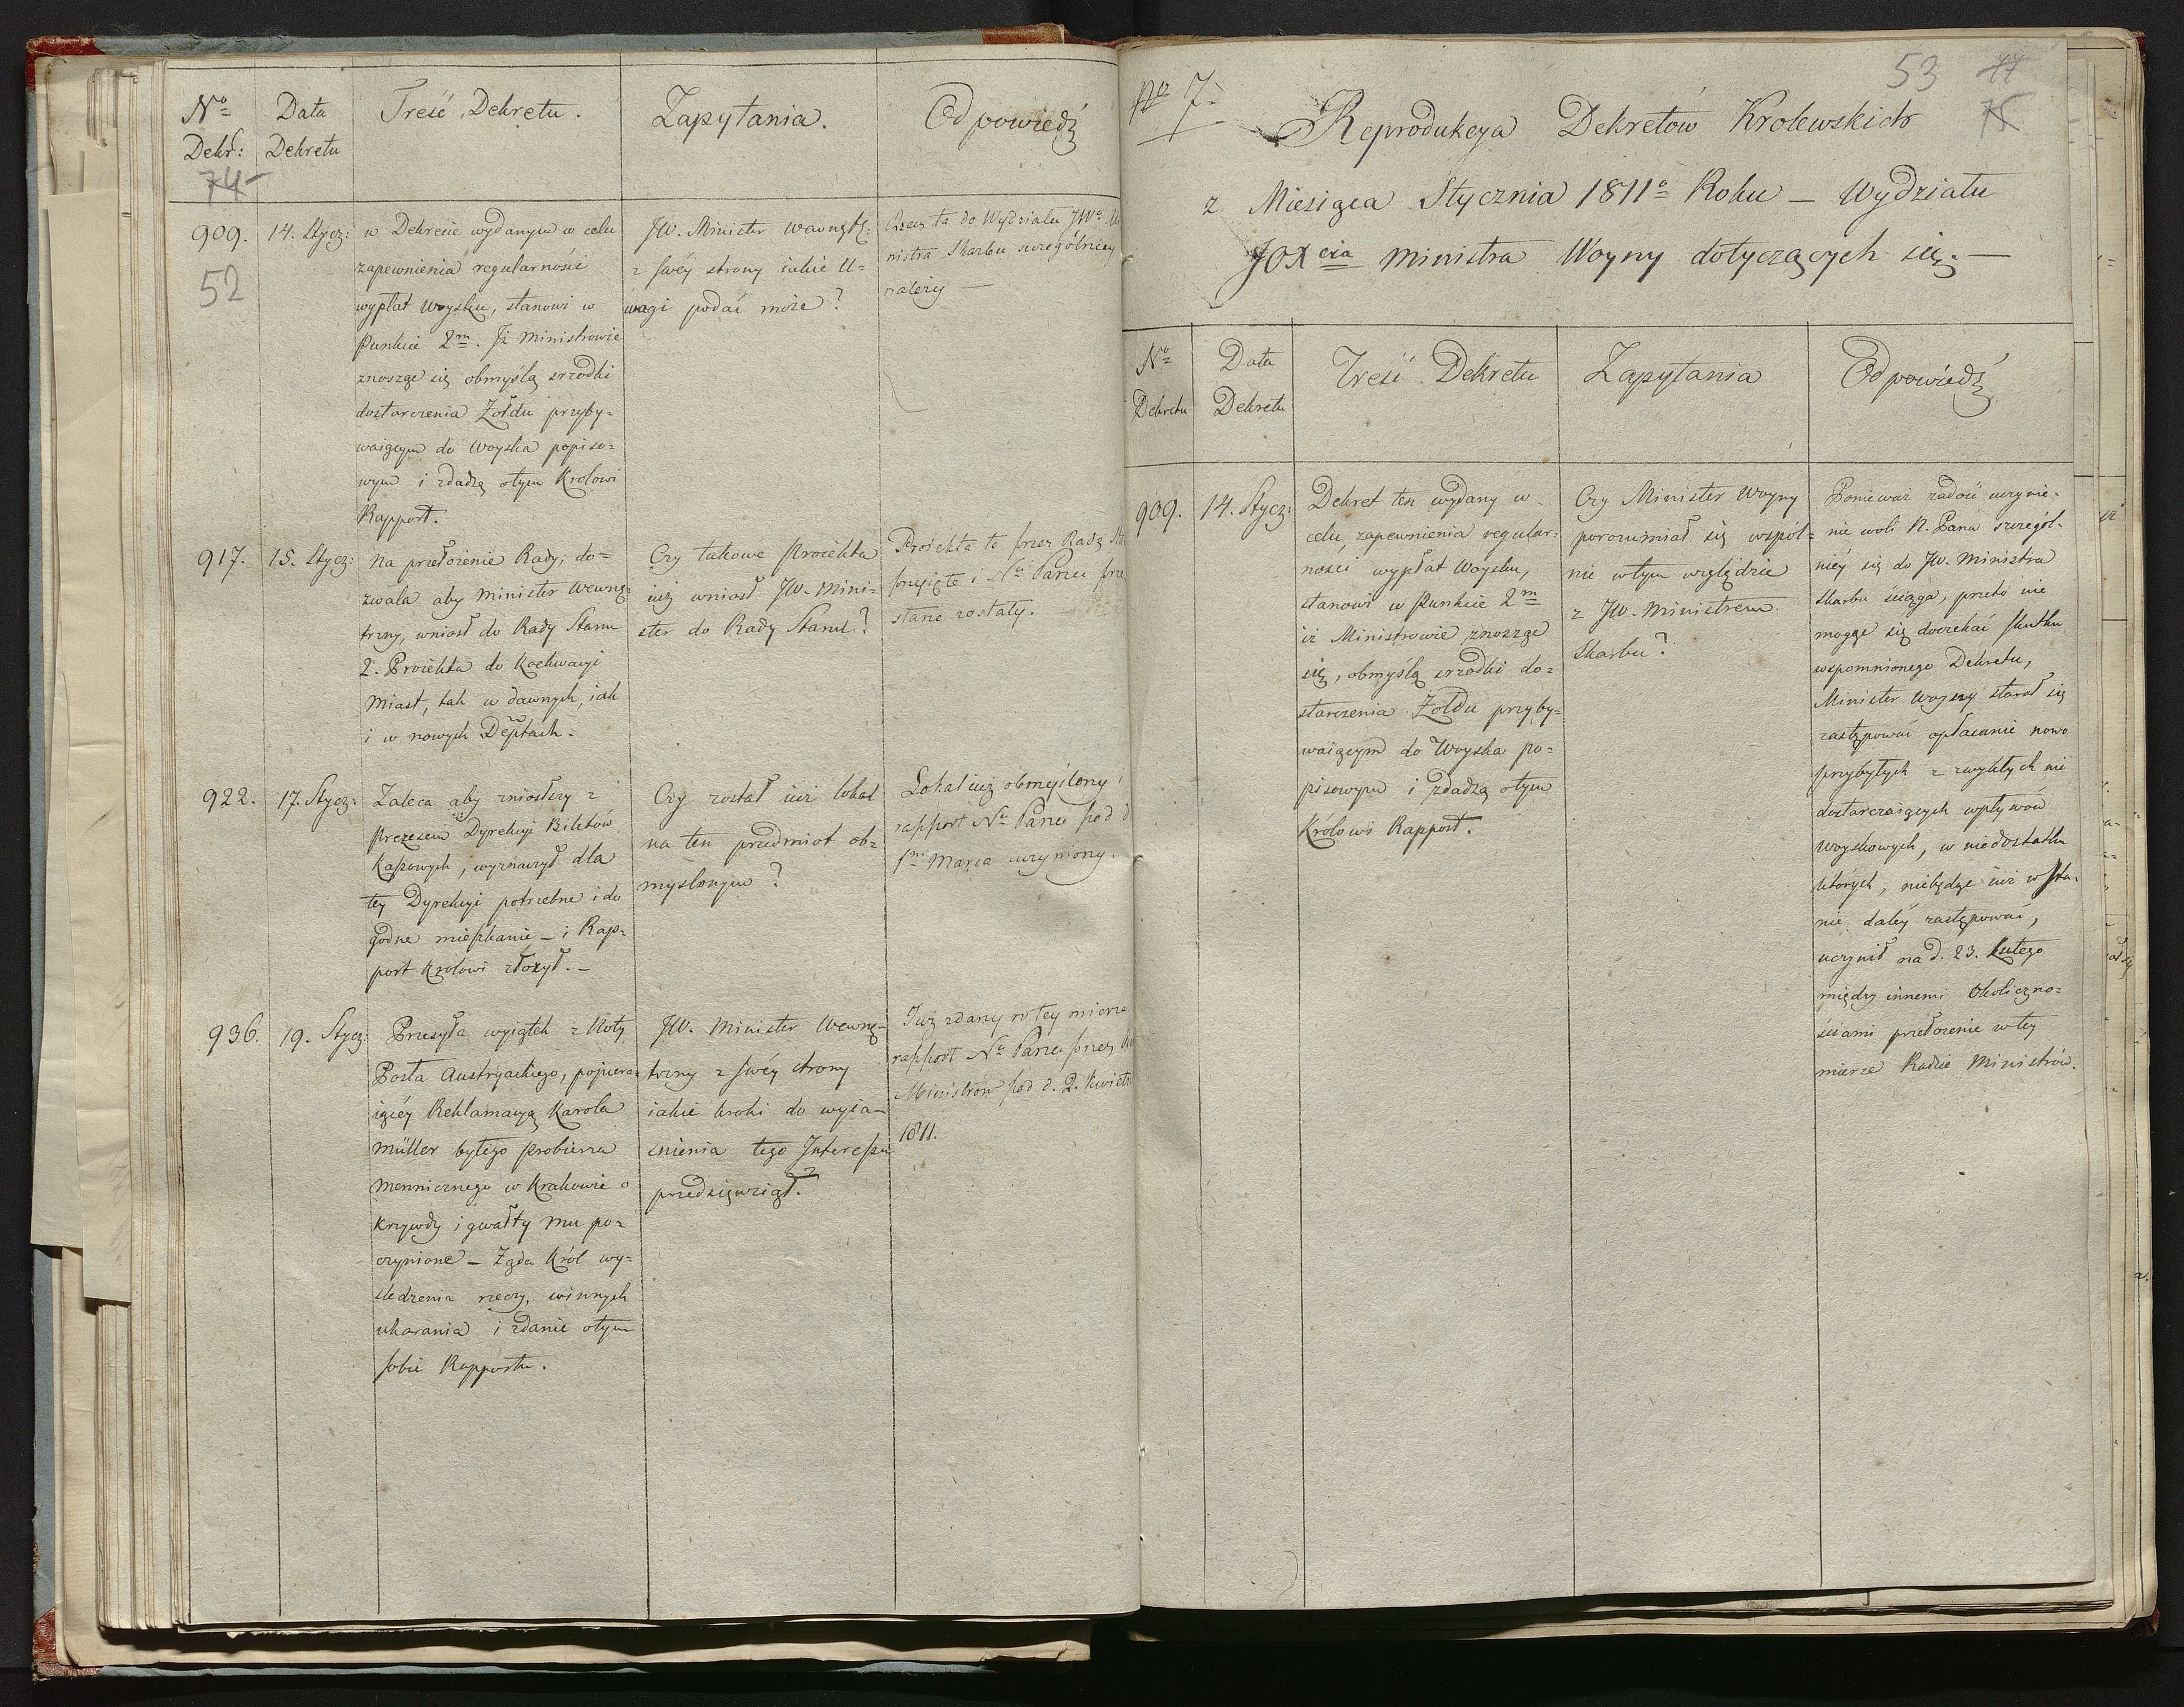 Nº Dekr:
Data Dekretu
Treść Dekretu.
Zapytania.
Odpowiedź
74
52
909.
14. Stycz:
w Dekrecie wydanym w celu
zapewnienia regularności
wypłat Woysku, stanowi w
Punkcie 2m. Iż Ministrowie
znosząc się obmyślą srzodki
dostarczenia Żołdu przyby=
waiącym do Woyska popiso=
wym i zdadzą otym Krolowi
Rapport.
JW. Minister Wewnętr:
z swéy strony iakie U=
wagi podać może?
Rzecz ta do Wydziału JWo Mi
nistra Skarbu szczególniey
należy —
917.
15. Stycz:
Na przełożenie Rady, do=
zwala aby Minister Wewnę=
trzny, wniosł do Rady Stanu
2. Proiekta do Koekwacyi
Miast, tak w dawnych, iak
i w nowych Deptach.
Czy takowe Proiekta
iuż wniosł JW. Mini=
ster do Rady Stanu?
Proiekta te przez Radę Sta
przyięte i Nu Panu prze
słane zostały.
922.
17. Stycz:
Zaleca aby zniosłszy z
Prezesem Dyrekcyi Biletów
Kassowych, wyznaczył dla
tey Dyrekcyi potrzebne i do
godne mieszkanie — i Rap=
port Krolowi złożył. —
Czy został iuż lokal
na ten przedmiot ob=
myslonym?
Lokal iuż obmyślony i
rapport Nu Panu pod d
1m Marca uczyniony.
936.
19. Stycz:
Przesyła wyiątek z Noty
Posła Austryackiego, popiera=
iącéy Reklamacyą Karola
Müller byłego Probierza
Mennicznego w Krakowie o
krzywdy i gwałty mu po=
czynione — Żąda Król wy=
śledzenia rzeczy, winnych
ukarania i zdanie otym
sobie Rapportu.
JW. Minister Wewnę=
trzny z swéy strony
iakie kroki do wyia=
śnienia tego Interessu
przedsięwziął?
Iuż zdany w tey mierze
rapport Nu Panu przez Ra
Ministrów pod d. 2. Kwietn
1811.
No 7.
53
77
75
Reprodukcya Dekretow Krolewskich
z Miesiąca Stycznia 1811o Roku — Wydziału
JOXcia Ministra Woyny dotyczących się. —
Nº Dekretu
Data Dekretu
Treść Dekretu
Zapytania
Odpowiedź
909.
14. Stycz:
Dekret ten wydany w
celu, zapewnienia regular=
ności wypłat Woysku,
stanowi w Punkcie 2m
iż Ministrowie znosząc
się, obmyślą srzodki do=
starczenia Żołdu przyby=
waiącym do Woyska po=
pisowym i zdadzą otym
Królowi Rapport.
Czy Minister Woyny
porozumiał się wspól=
nie wtym względzie
z JW. Ministrem
Skarbu?
Ponieważ zadość uczynie=
nie woli N. Pana szczegól=
niéy się do JW. Ministra
Skarbu ściąga, przeto nie
mogąc się doczekać skutku
wspomnionego Dekretu,
Minister Woyny starał się
zastępować opłacanie nowo
przybyłych z zwykłych nie
dostarczaiących wpływów
Woyskowych, w niedostatku
których, niebędąc iuż w sta=
nie daléy zastępować,
uczynił na d. 23. Lutego
między innemi Okoliczno=
ściami przełożenie w tey
mierze Radzie Ministrów.